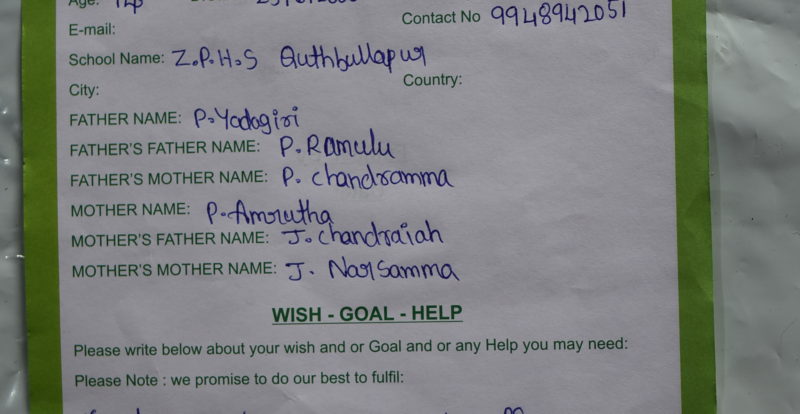 Age:
Contact No 9948942051
E-mail:
School Name: Z.P.H.S Quthbullapur
City: Country:
FATHER NAME: P.Yadagiri
FATHER'S FATHER NAME: P.Ramulu
FATHER'S MOTHER NAME: P. Chandramma
MOTHER NAME: P.Amrutha
MOTHER'S FATHER NAME: J.Chandraiah
MOTHER'S MOTHER NAME: J. Narsamma
WISH - GOAL - HELP
Please write below about your wish and or Goal and or any Help you may need:
Please Note : we promise to do our best to fulfil: